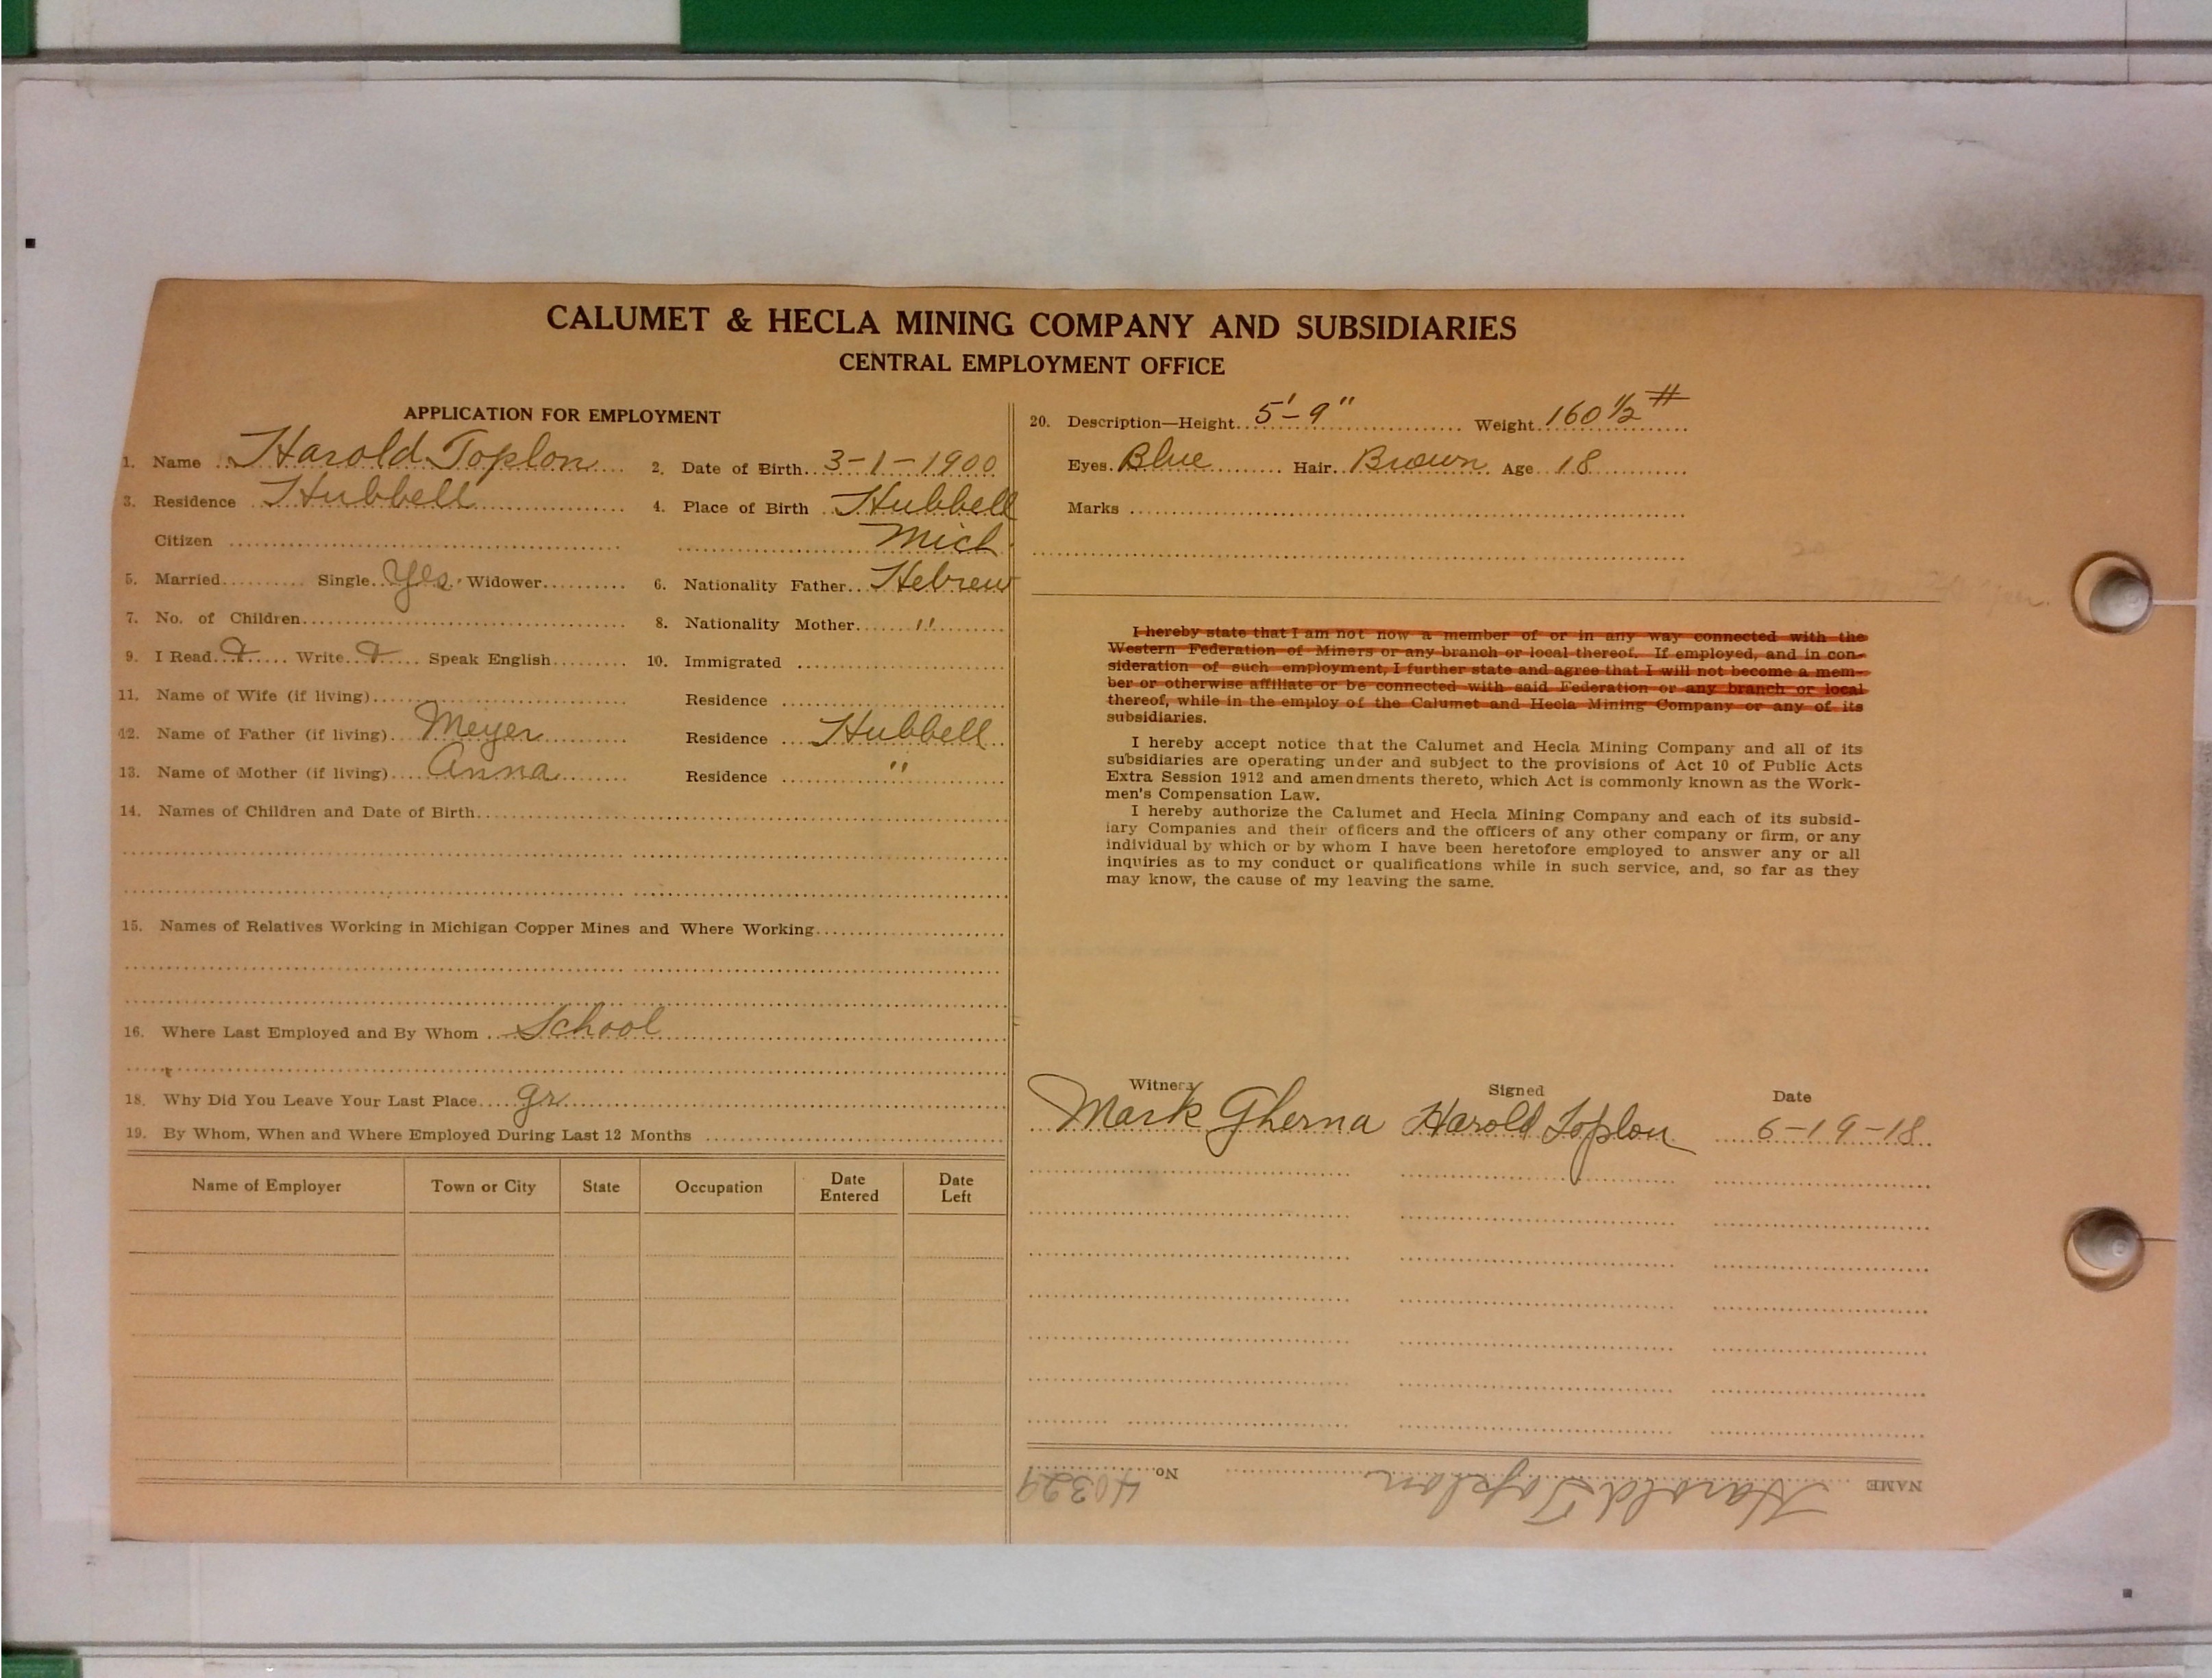 CALUMET & HECLA MINING COMPANY AND SUBSIDIARIES
CENTRAL EMPLOYMENT OFFICE
APPLICATION FOR EMPLOYMENT
1. Name Harold Toplon 2. Date of Birth 3-1-1900
3. Residence Hubbell 4. Place of Birth Hubbell
Citizen Mich
5. Married Single Yes Widower 6. Nationality Father Hebrew
7. No. of Children 8. Nationality Mother "
9. I Read Write Speak English 10. Immigrated
11. Name of Wife (if living) Residence
12. Name of Father (if living) Meyer Residence Hubbell
13. Name of Mother (if living) Anna Residence "
14. Names of Children and Date of Birth
15. Names of Relatives Working in Michigan Copper Mines and Where Working
16. Where Last Employed and By Whom School
18. Why Did You Leave Your Last Place gr
19. By Whom, When and Where Employed During Last 12 Months
Name of Employer Town or City State Occupation Date Entered Date Left
20. Description—Height 5'-9" Weight 160 1/2 #
Eyes Blue Hair Brown Age 18
Marks
I hereby state that I am not now a member of or in any way connected with the
Western Federation of Miners or any branch or local thereof. If employed, and in con-
sideration of such employment, I further state and agree that I will not become a mem-
ber or otherwise affiliate or be connected with said Federation or any branch or local
thereof, while in the employ of the Calumet and Hecla Mining Company or any of its
subsidiaries.
I hereby accept notice that the Calumet and Hecla Mining Company and all of its
subsidiaries are operating under and subject to the provisions of Act 10 of Public Acts
Extra Session 1912 and amendments thereto, which Act is commonly known as the Work-
men's Compensation Law.
I hereby authorize the Calumet and Hecla Mining Company and each of its subsid-
iary Companies and their officers and the officers of any other company or firm, or any
individual by which or by whom I have been heretofore employed to answer any or all
inquiries as to my conduct or qualifications while in such service, and, so far as they
may know, the cause of my leaving the same.
Witness Signed Date
Mark Gherna Harold Toplon 6-19-18
NAME Harold Toplon No. 40329